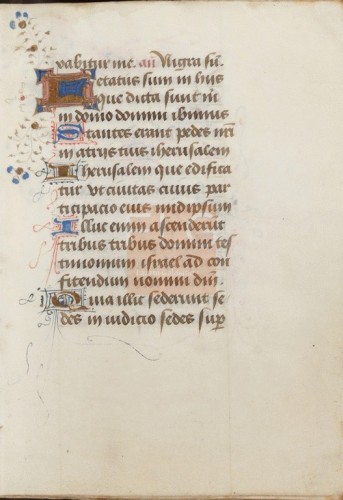 xabitur me. añ Nigra sū.
Letatus sum in hiis
que dicta sunt m̄
in domo domini ibimus
Stantes erant pedes nr̄i
in atriis tuis iherusalem
Iherusalem que edifica
tur vt ciuitas cuius par
ticipacio eius in idipsum
Illuc enim ascenderūt
tribus tribus domini tes
timonium israel ad con
fitendum nomini dn̄i.
Quia illic sederunt se
des in iudicio sedes sup̄